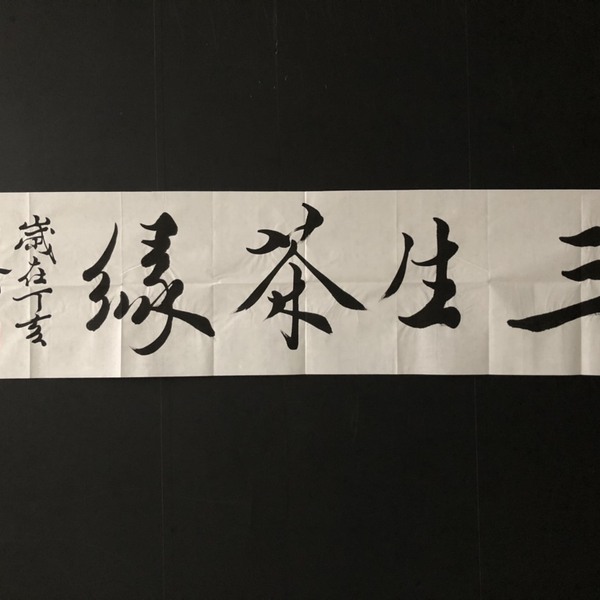 三生茶緣
歲在丁亥